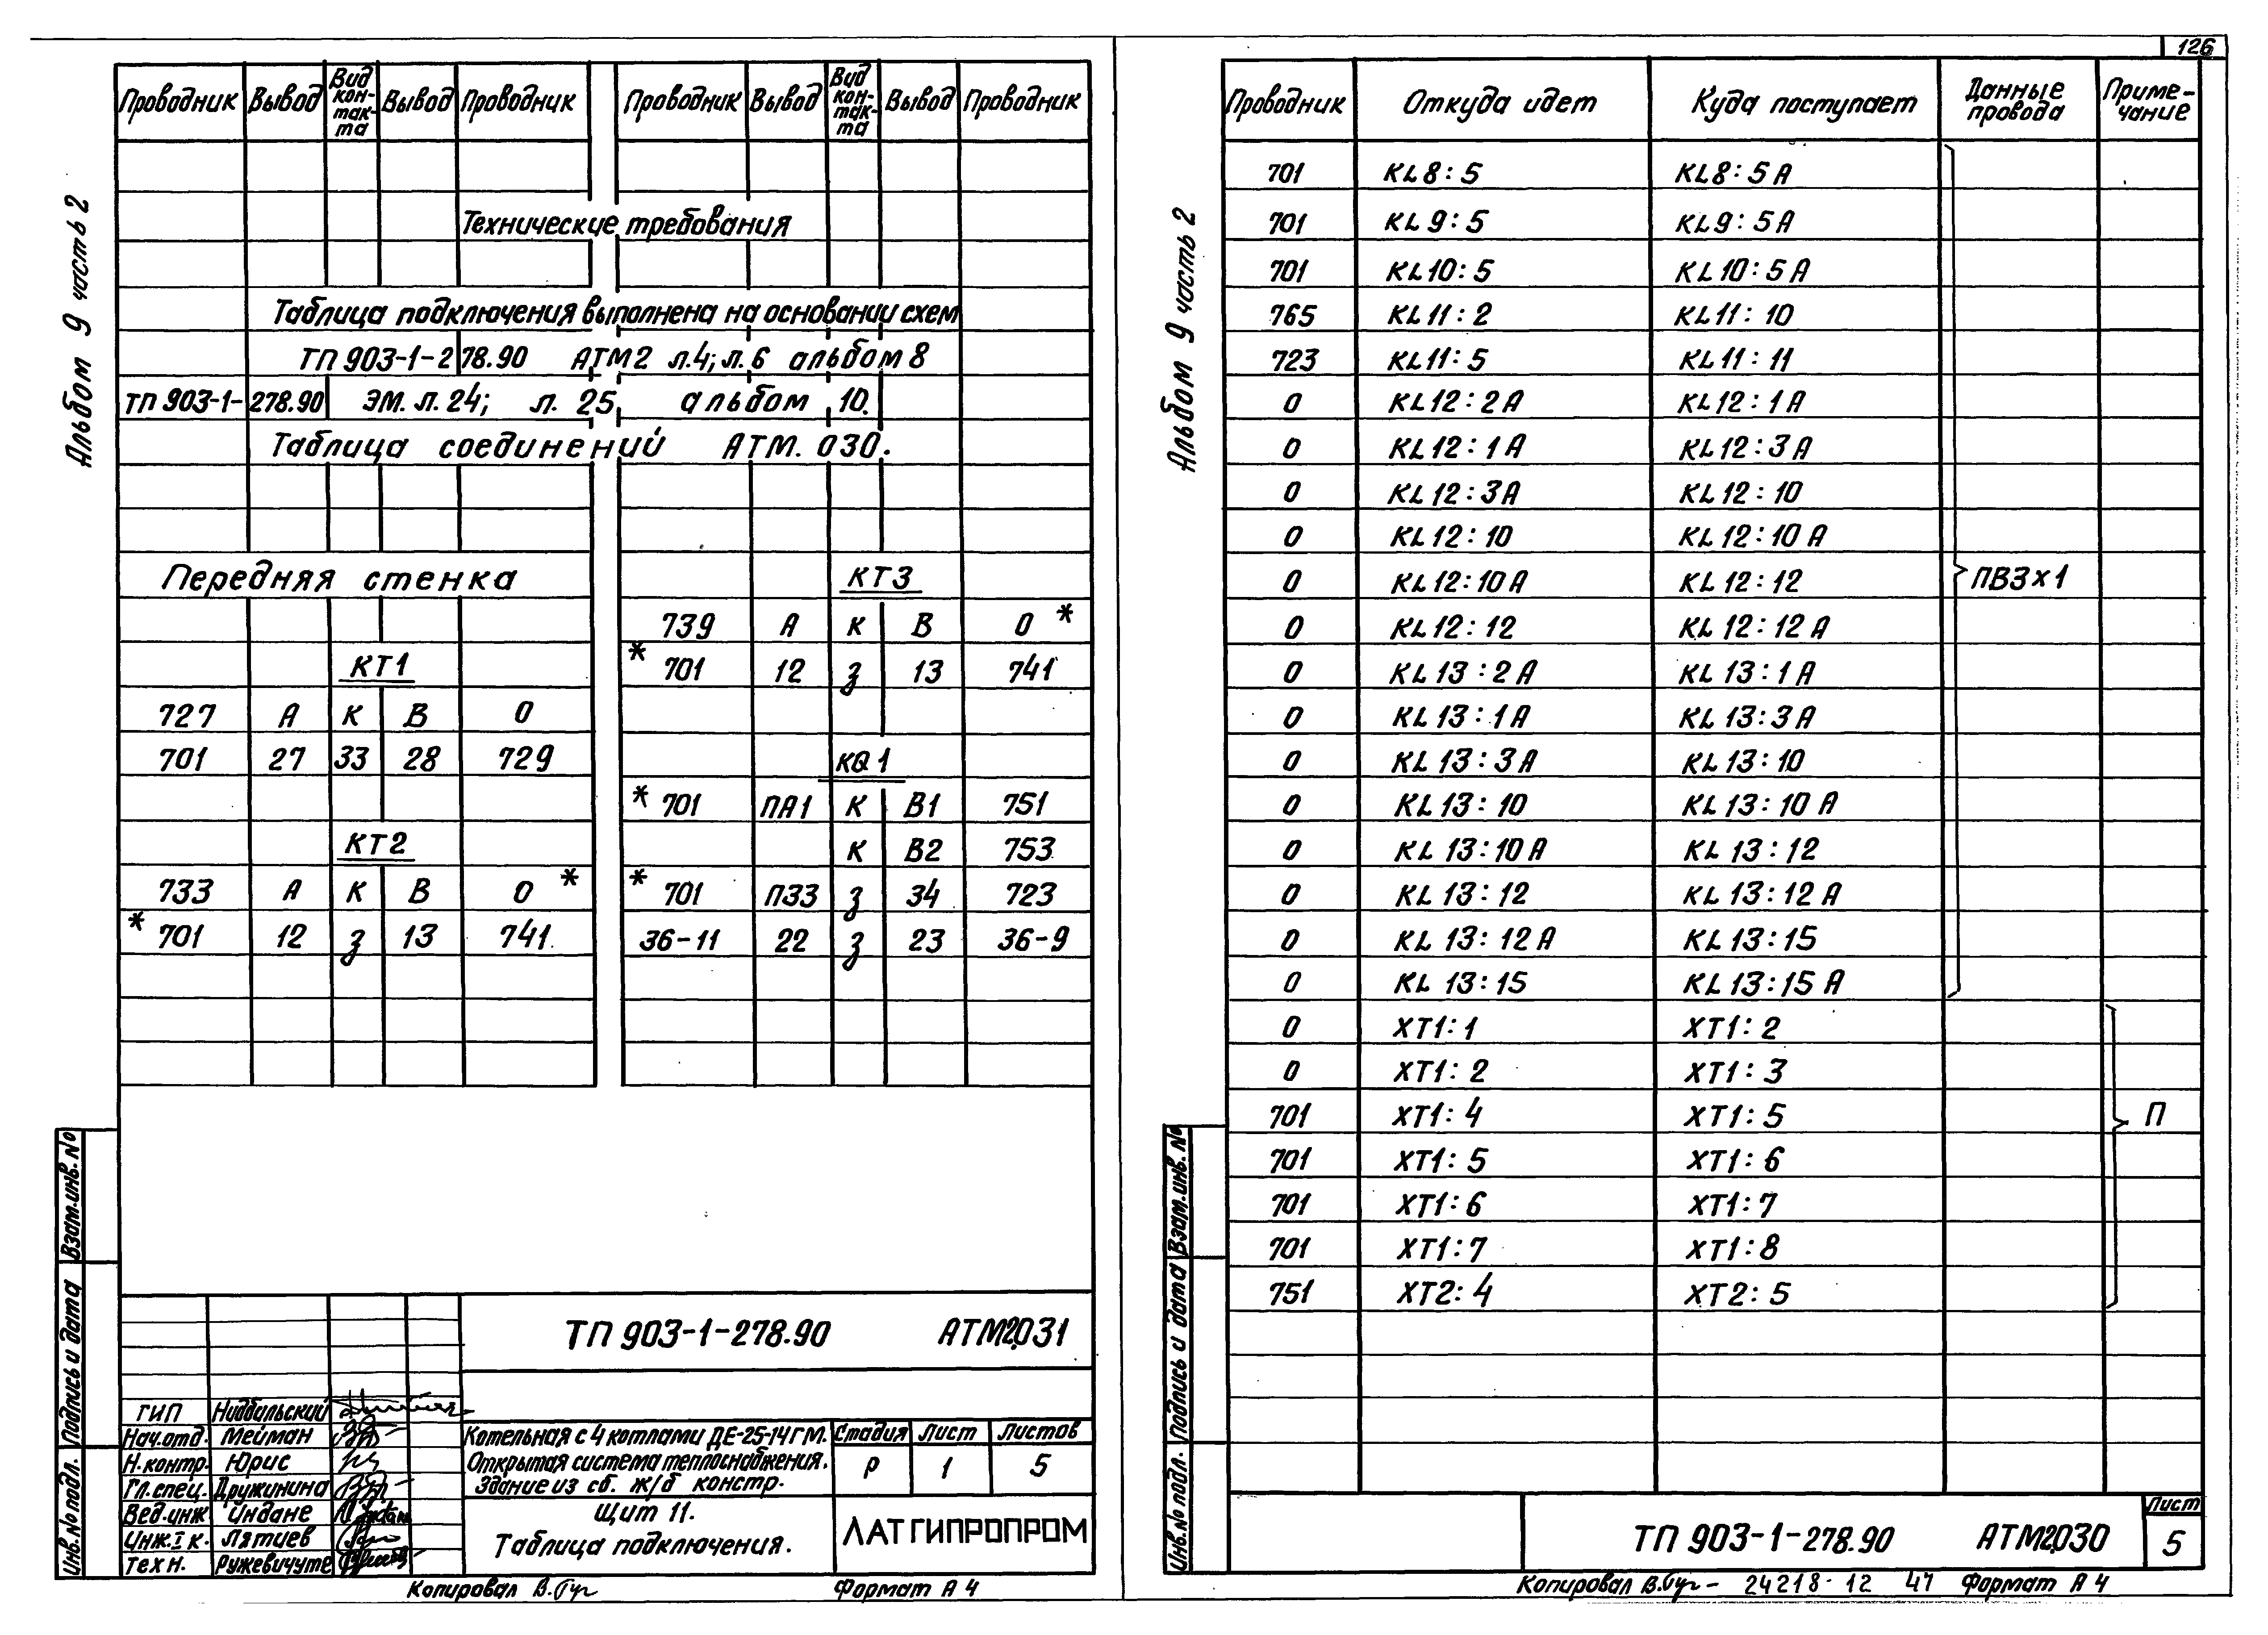 126
Альбом 9 часть 2
Проводник Вывод Вид кон-так-та Вывод Проводник Проводник Вывод Вид кон-так-та Вывод Проводник
Технические требования
Таблица подключения выполнена на основании схем
ТП 903-1-278.90 АТМ2 л.4; л.6 альбом 8
ТП 903-1-278.90 ЭМ. л. 24; л. 25 альбом 10.
Таблица соединений АТМ. 030.
Передняя стенка
КТ1
727 А К В 0
701 27 33 28 729
КТ2
733 А К В 0 *
* 701 12 З 13 741
КТ3
739 А К В 0 *
* 701 12 З 13 741
KQ1
* 701 ПА1 К В1 751
К В2 753
* 701 П33 З 34 723
36-11 22 З 23 36-9
Взам.инв.№
Подпись и дата
Инв.№ подл.
ТП 903-1-278.90 АТМ2.031
ГИП Нидбальский
Нач.отд. Мейман
Н.контр. Юрис
Гл.спец. Дружинина
Вед.инж Индане
Инж.I к. Лятиев
Техн. Ружевичуте
Котельная с 4 котлами ДЕ-25-14ГМ.
Открытая система теплоснабжения.
Здание из сб. ж/б констр.
Стадия Лист Листов
Р 1 5
Щит 11.
Таблица подключения.
ЛАТГИПРОПРОМ
Копировал В. Формат А4
Альбом 9 часть 2
Проводник Откуда идет Куда поступает Данные провода Приме-чание
701 KL8:5 KL8:5А
701 KL9:5 KL9:5А
701 KL10:5 KL10:5А
765 KL11:2 KL11:10
723 KL11:5 KL11:11
0 KL12:2А KL12:1А
0 KL12:1А KL12:3А
0 KL12:3А KL12:10
0 KL12:10 KL12:10А
0 KL12:10А KL12:12 ПВ3х1
0 KL12:12 KL12:12А
0 KL13:2А KL13:1А
0 KL13:1А KL13:3А
0 KL13:3А KL13:10
0 KL13:10 KL13:10А
0 KL13:10А KL13:12
0 KL13:12 KL13:12А
0 KL13:12А KL13:15
0 KL13:15 KL13:15А
0 ХТ1:1 ХТ1:2
0 ХТ1:2 ХТ1:3
701 ХТ1:4 ХТ1:5 П
701 ХТ1:5 ХТ1:6
701 ХТ1:6 ХТ1:7
701 ХТ1:7 ХТ1:8
751 ХТ2:4 ХТ2:5
Взам.инв.№
Подпись и дата
Инв.№ подл.
ТП 903-1-278.90 АТМ2.030
Лист
5
Копировал В. 24218-12 47 Формат А4